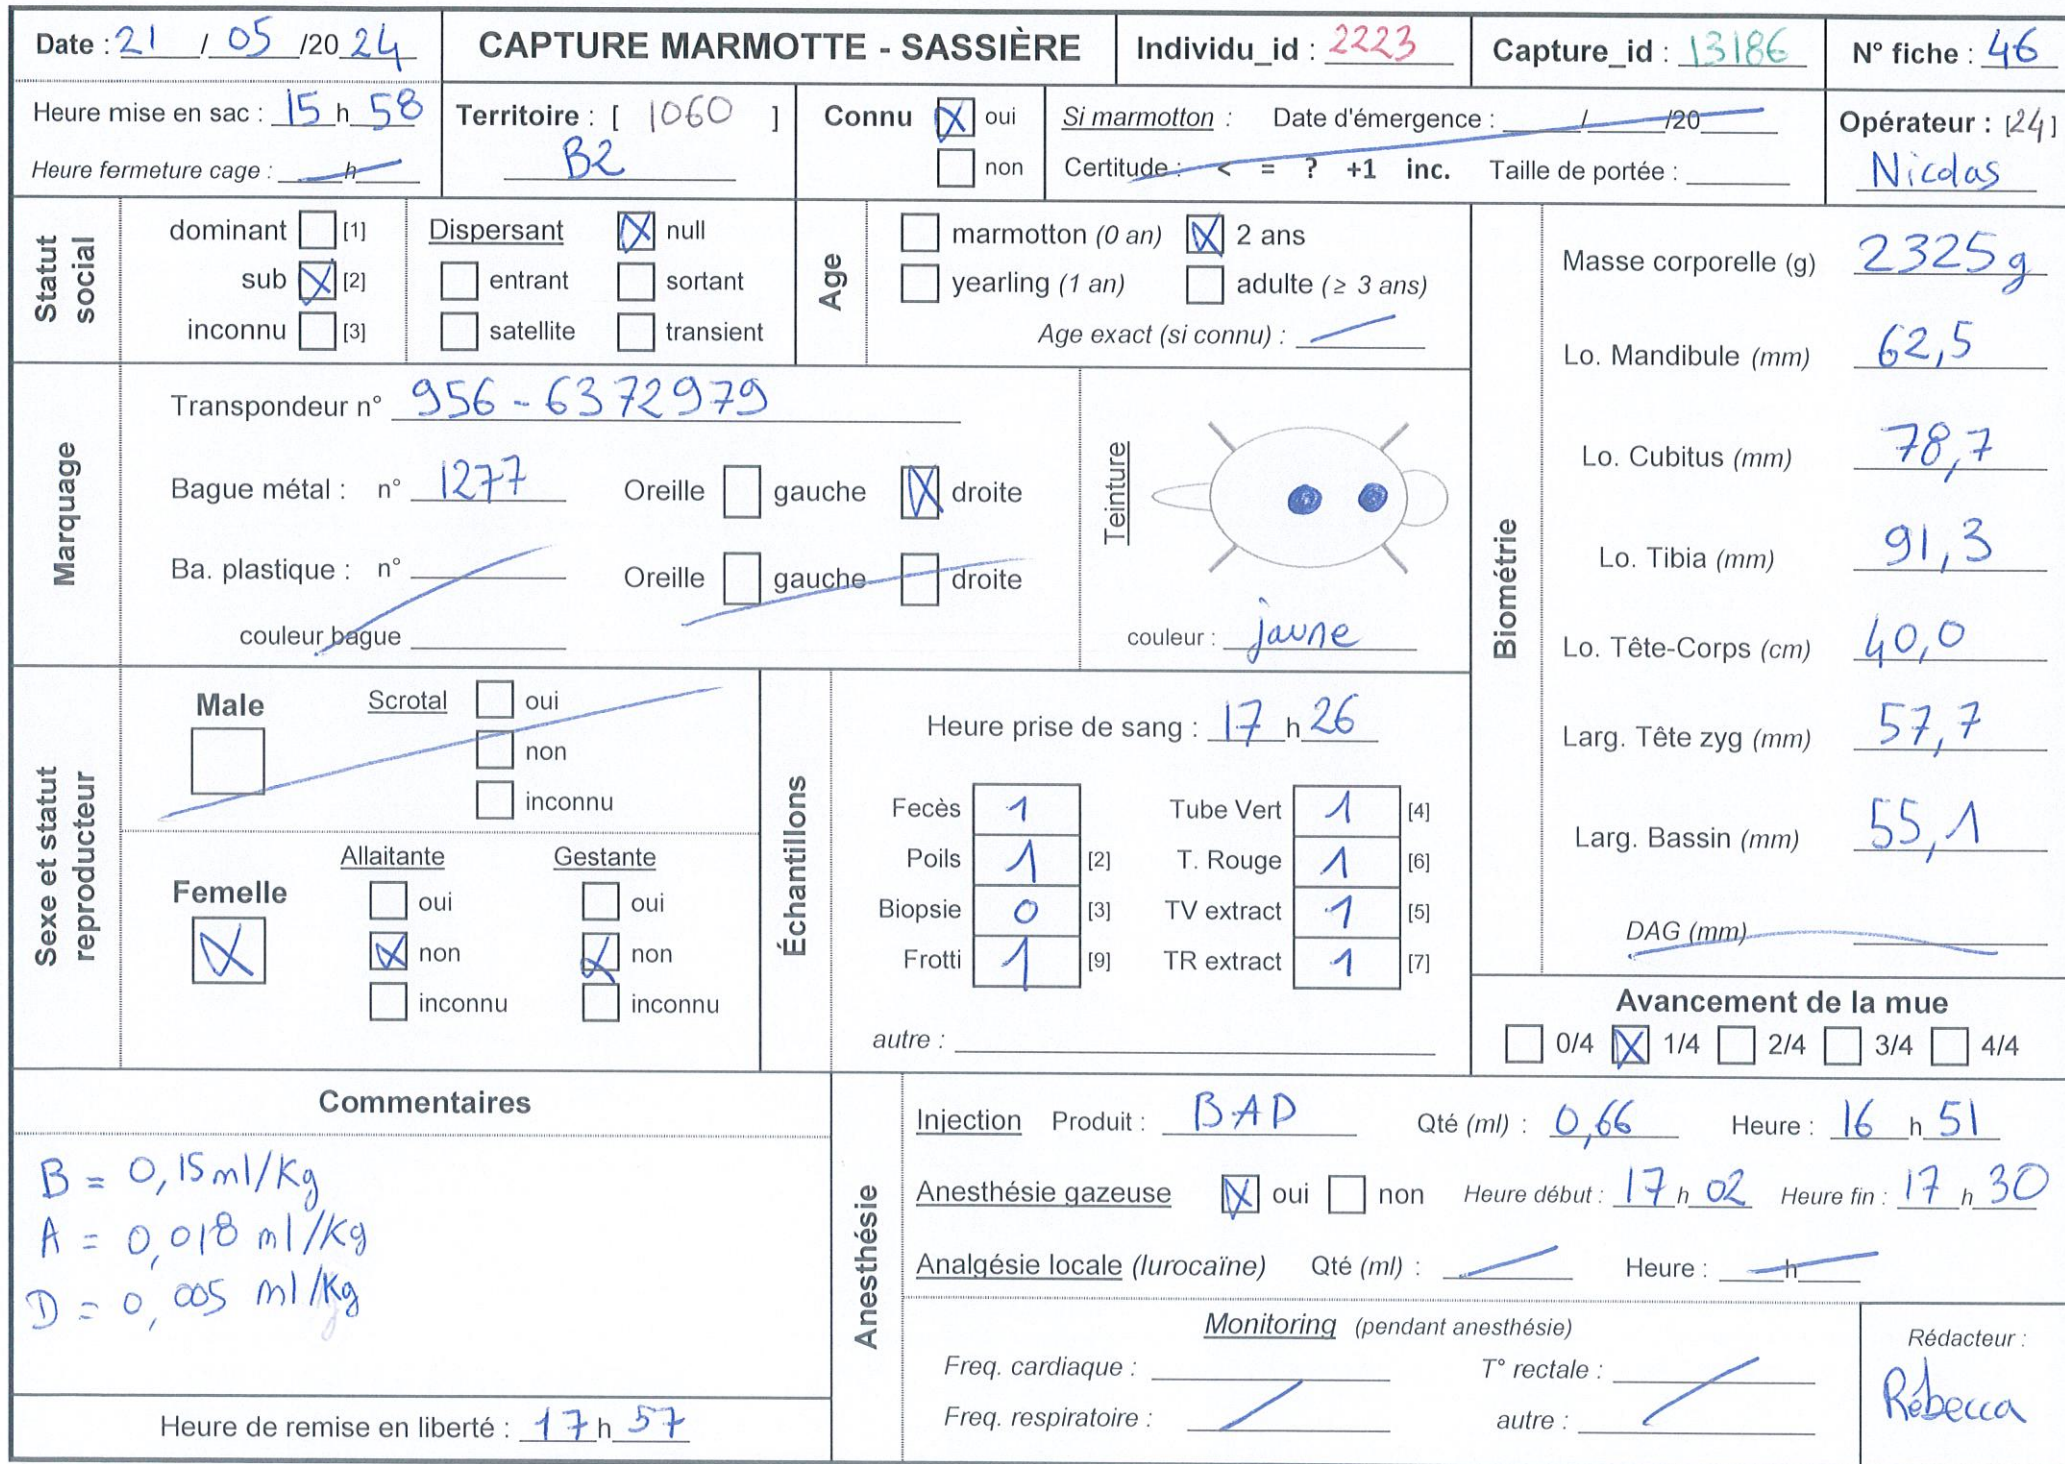 Date : 21 / 05 /20 24
CAPTURE MARMOTTE - SASSIÈRE
Individu_id : 2223
Capture_id : 13186
N° fiche : 46
Heure mise en sac : 15 h 58
Heure fermeture cage : h
Territoire : [ 1060 ]
B2
Connu oui
non
Si marmotton : Date d'émergence : / /20
Certitude : < = ? +1 inc. Taille de portée :
Opérateur : [24]
Nicolas
Statut social
dominant [1]
sub [2]
inconnu [3]
Dispersant null
entrant sortant
satellite transient
Age
marmotton (0 an) 2 ans
yearling (1 an) adulte (≥ 3 ans)
Age exact (si connu) :
Marquage
Transpondeur n° 956 - 6372979
Bague métal : n° 1277 Oreille gauche droite
Ba. plastique : n° Oreille gauche droite
couleur bague
Teinture
couleur : jaune
Biométrie
Masse corporelle (g) 2325 g
Lo. Mandibule (mm) 62,5
Lo. Cubitus (mm) 78,7
Lo. Tibia (mm) 91,3
Lo. Tête-Corps (cm) 40,0
Larg. Tête zyg (mm) 57,7
Larg. Bassin (mm) 55,1
DAG (mm)
Sexe et statut reproducteur
Male Scrotal oui
non
inconnu
Femelle
Allaitante Gestante
oui oui
non non
inconnu inconnu
Échantillons
Heure prise de sang : 17 h 26
Fecès 1 Tube Vert 1 [4]
Poils 1 [2] T. Rouge 1 [6]
Biopsie 0 [3] TV extract 1 [5]
Frotti 1 [9] TR extract 1 [7]
autre :
Avancement de la mue
0/4 1/4 2/4 3/4 4/4
Commentaires
B = 0,15 ml/Kg
A = 0,018 ml/Kg
D = 0,005 ml/Kg
Heure de remise en liberté : 17 h 57
Anesthésie
Injection Produit : BAD Qté (ml) : 0,66 Heure : 16 h 51
Anesthésie gazeuse oui non Heure début : 17 h 02 Heure fin : 17 h 30
Analgésie locale (lurocaïne) Qté (ml) : Heure : h
Monitoring (pendant anesthésie)
Freq. cardiaque : T° rectale :
Freq. respiratoire : autre :
Rédacteur :
Rébecca